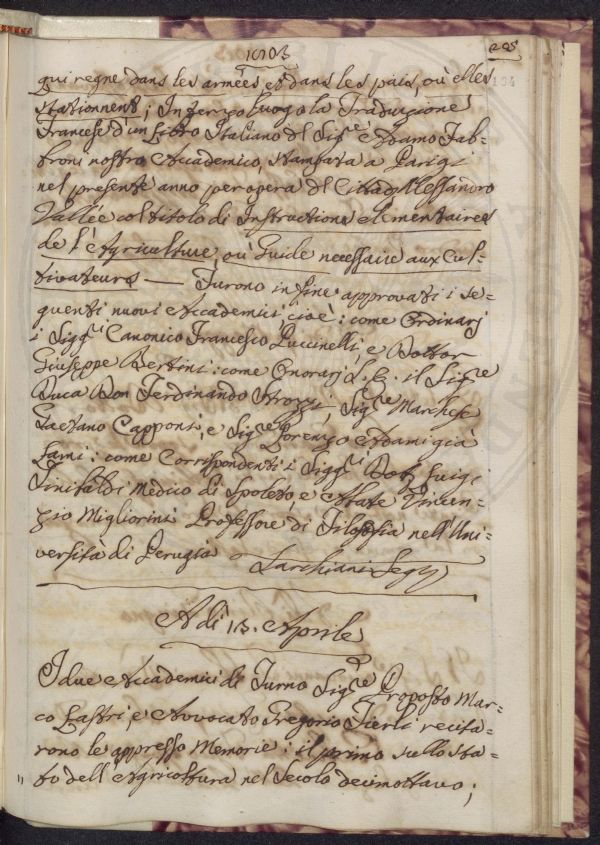 1803
205
134
qui regne dans les armées, et dans les païs, où elles
stationnent; In terzo luogo la Traduzione
Francese d'un Libro Italiano del Sigre Adamo Fab=
broni nostro Accademico, stampata a Parigi
nel presente anno per opera del Citad. Alessandro
Vallée col titolo di Instructions elementaires
de l'Agriculture, où Guide necessaire aux Cul=
tivateurs — Furono infine approvati i se=
guenti nuovi Accademici, cioè: come Ordinarj
i Sigg.ri Canonico Francesco Puccinelli, e Dottor
Giuseppe Bertini: come Onorarj il Sigre
Duca Don Ferdinando Strozzi, Sigre Marchese
Gaetano Capponi, e Sigre Lorenzo Adami già
Lami: come Corrispondenti i Sigg.ri Dott. Luigi
Sinibaldi Medico di Spoleto, e Abate Vincen=
zio Migliorini Professore di Filosofia nell'Uni=
versita di Perugia Sarchiani Segr.
A dì 13. Aprile
I due Accademici di Turno Sigre Proposto Mar=
co Lastri, e Avvocato Gregorio Fierli recita=
rono le appresso Memorie: il primo sullo sta=
to dell'Agricoltura nel Secolo decimottavo;